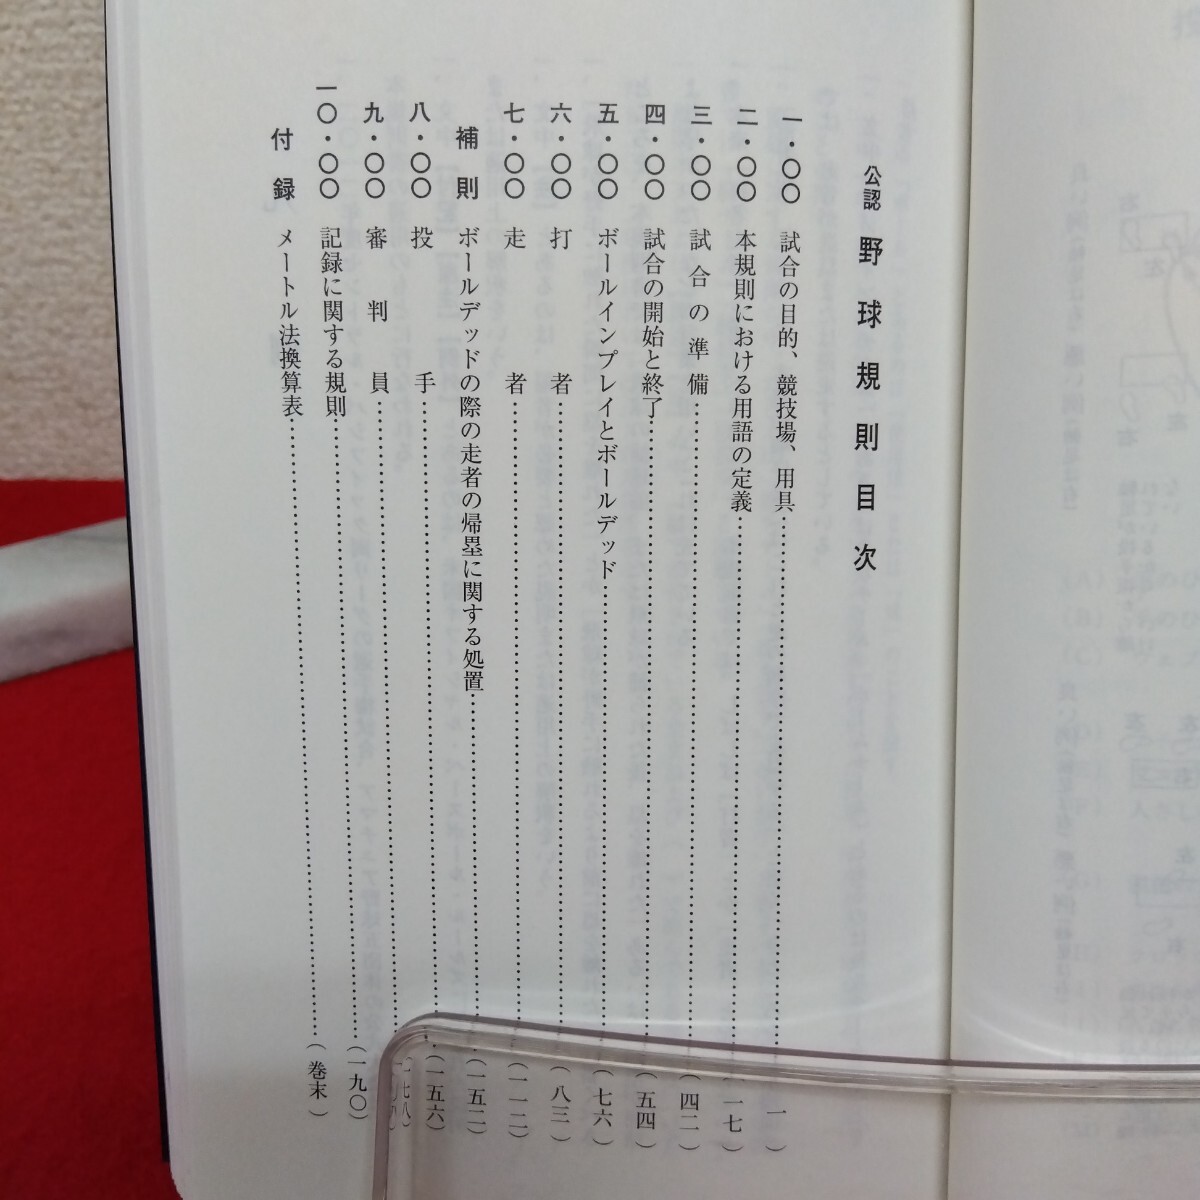 公認 野球規則目次
一・〇〇 試合の目的、競技場、用具……(一)
二・〇〇 本規則における用語の定義……(一七)
三・〇〇 試合の準備……(四二)
四・〇〇 試合の開始と終了……(五四)
五・〇〇 ボールインプレイとボールデッド……(七六)
六・〇〇 打者……(八三)
七・〇〇 走者……(一一二)
補則 ボールデッドの際の走者の帰塁に関する処置……(一五二)
八・〇〇 投手……(一五六)
九・〇〇 審判員……(一七八)
一〇・〇〇 記録に関する規則……(一九〇)
付録 メートル法換算表……(巻末)